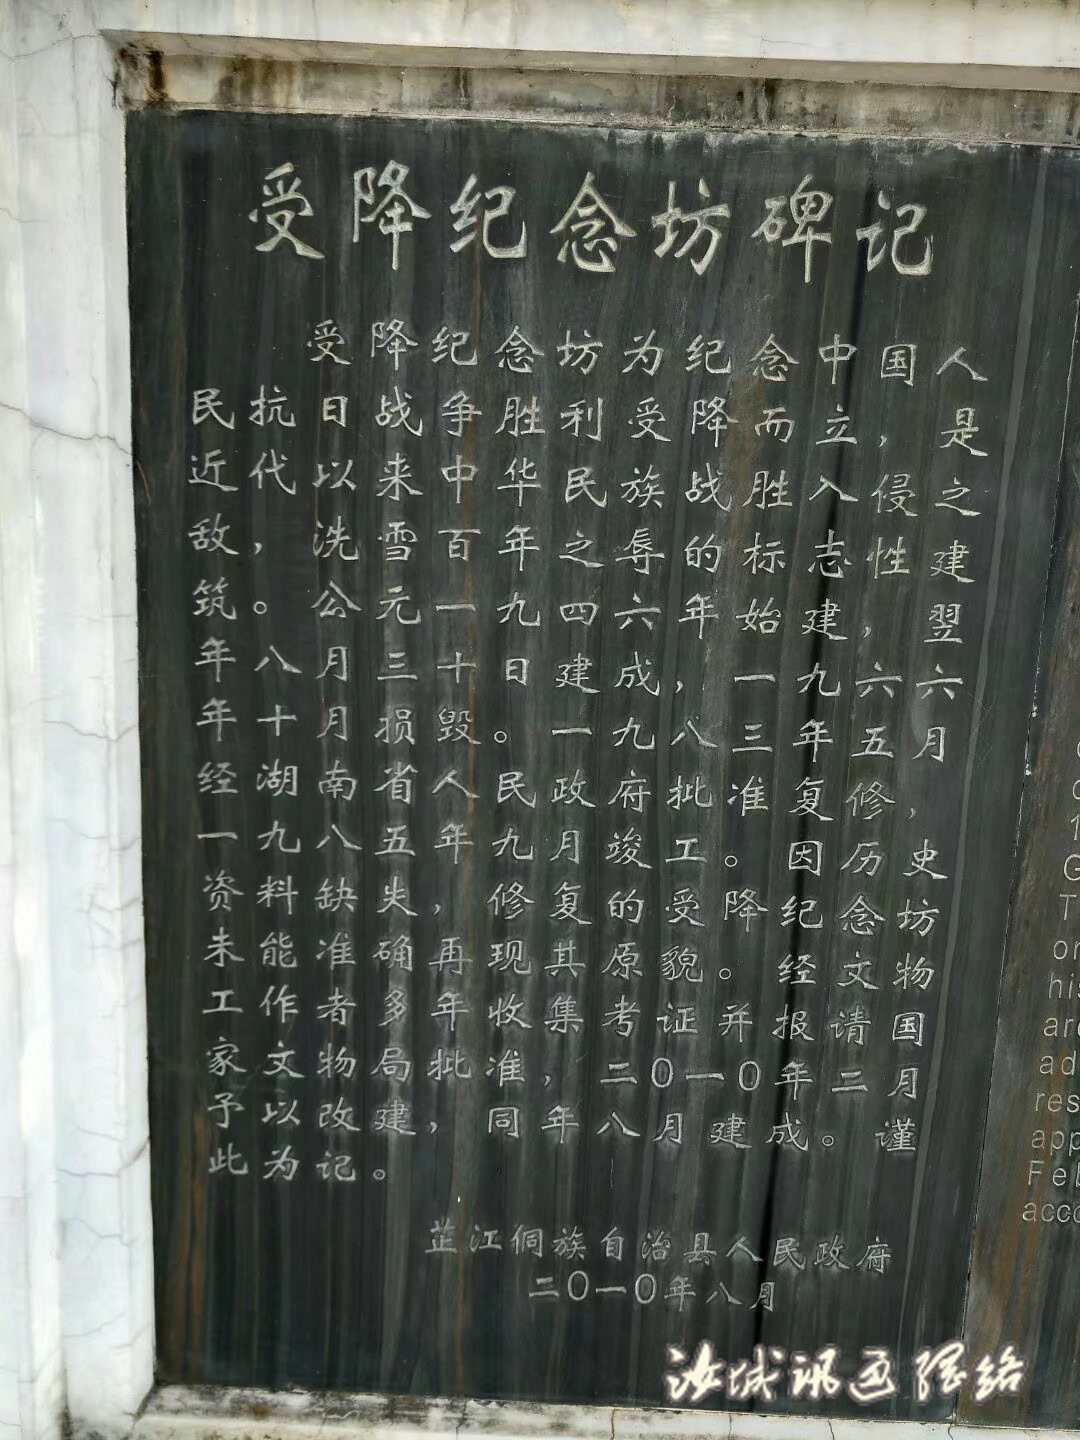 受降纪念坊碑记
受降纪念坊为纪念中国人
民抗日战争胜利受降而立，是
近代以来中华民族战胜入侵之
敌，洗雪百年之辱的标志性建
筑。公元一九四六年始建，翌
年八月三十日建成，一九六六
年十月损毁。一九八三年五月
经湖南省人民政府批准复修，
一九八五年九月竣工。因历史
资料缺失，修复的受降纪念坊
未能准确再现其原貌。经文物
工作者多年收集考证并报请国
家文物局批准，二〇一〇年二月
予以改建，同年八月建成。谨
此为记。
芷江侗族自治县人民政府
二〇一〇年八月
G
T
hi
ar
ad
res
app
Fe
acco